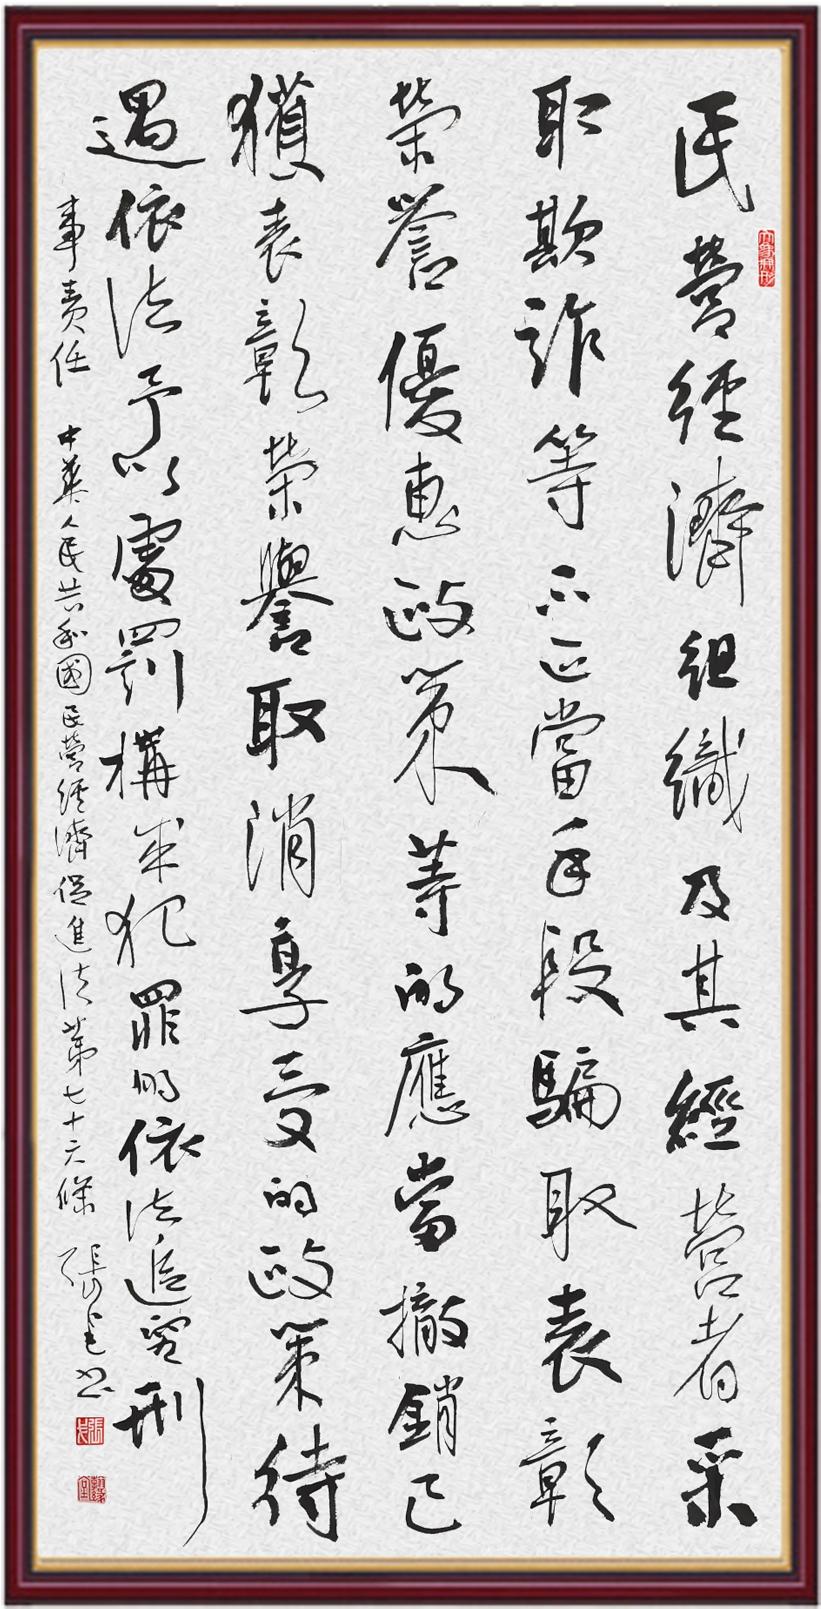 民營經濟組織及其經營者采
取欺詐等不正當手段騙取表彰
榮譽優惠政策等的應當撤銷已
獲表彰榮譽取消享受的政策待
遇依法予以處罰構成犯罪的依法追究刑
事責任 中華人民共和國民營經濟促進法第七十六條 張